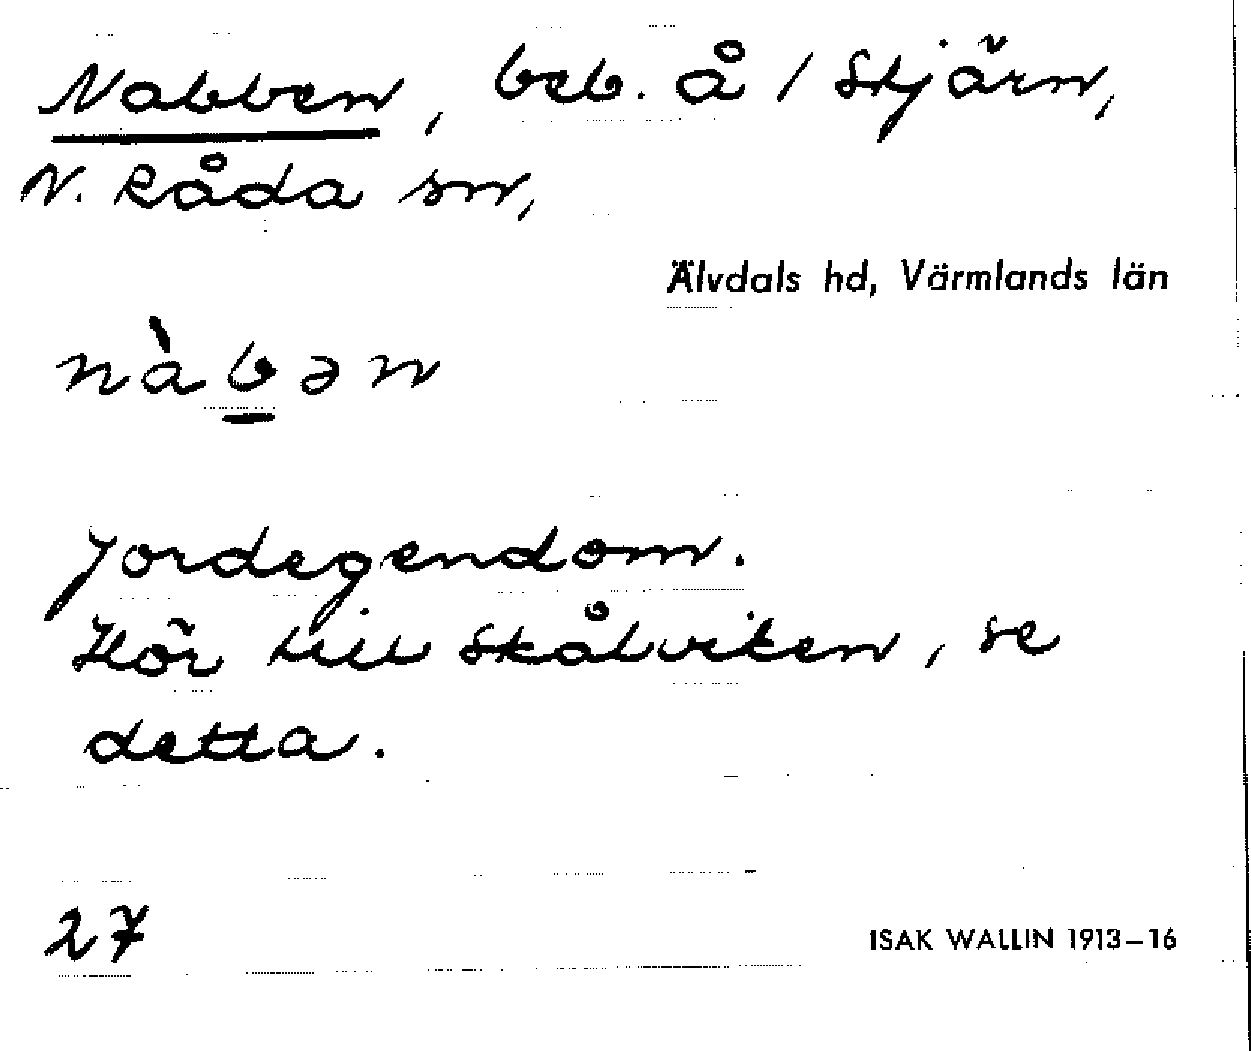 Nabben, beb. å 1 Stjärn,
N. Råda sn,
Älvdals hd, Värmlands län
nàb̲ən
Jordegendom.
Hör till Skålviken, se
detta.
27
ISAK WALLIN 1913–16